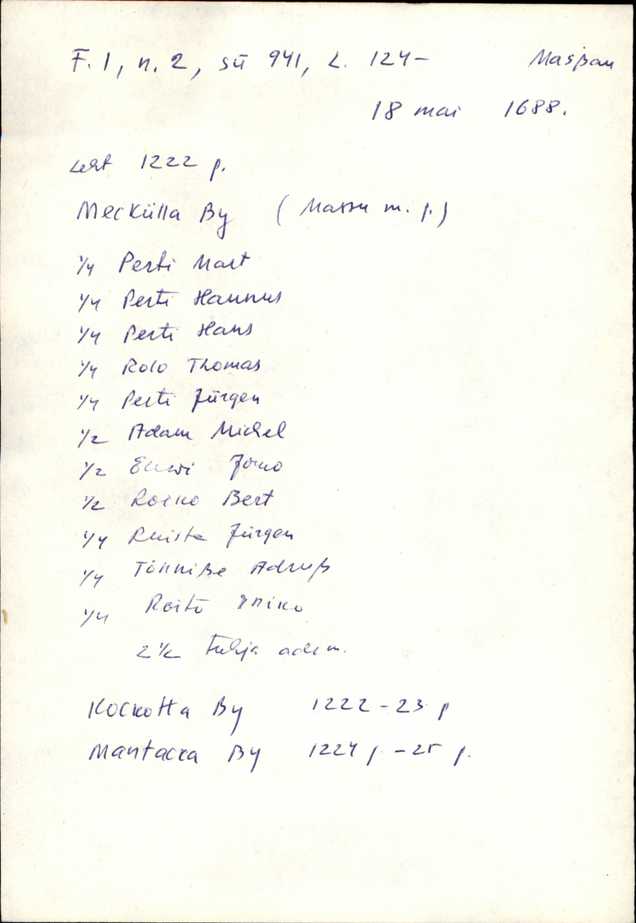 F. 1, n. 2, sü 941, L. 124-
18 mai 1688.
Leht 1222 p.
Meckülla By (Massu m. p.)
1/4 Perti Mart
1/4 Perti Hannus
1/4 Perti Hans
1/4 Rolo Thomas
1/4 Perti Jürgen
1/2 Adam Michel
1/2
1/2 Bert
1/4 Jürgen
1/4 Tönniße Adruß
1/4
2 1/2 Tühja
Kockotta By 1222-23 p
Mantacka By 1224 p. -25 p.